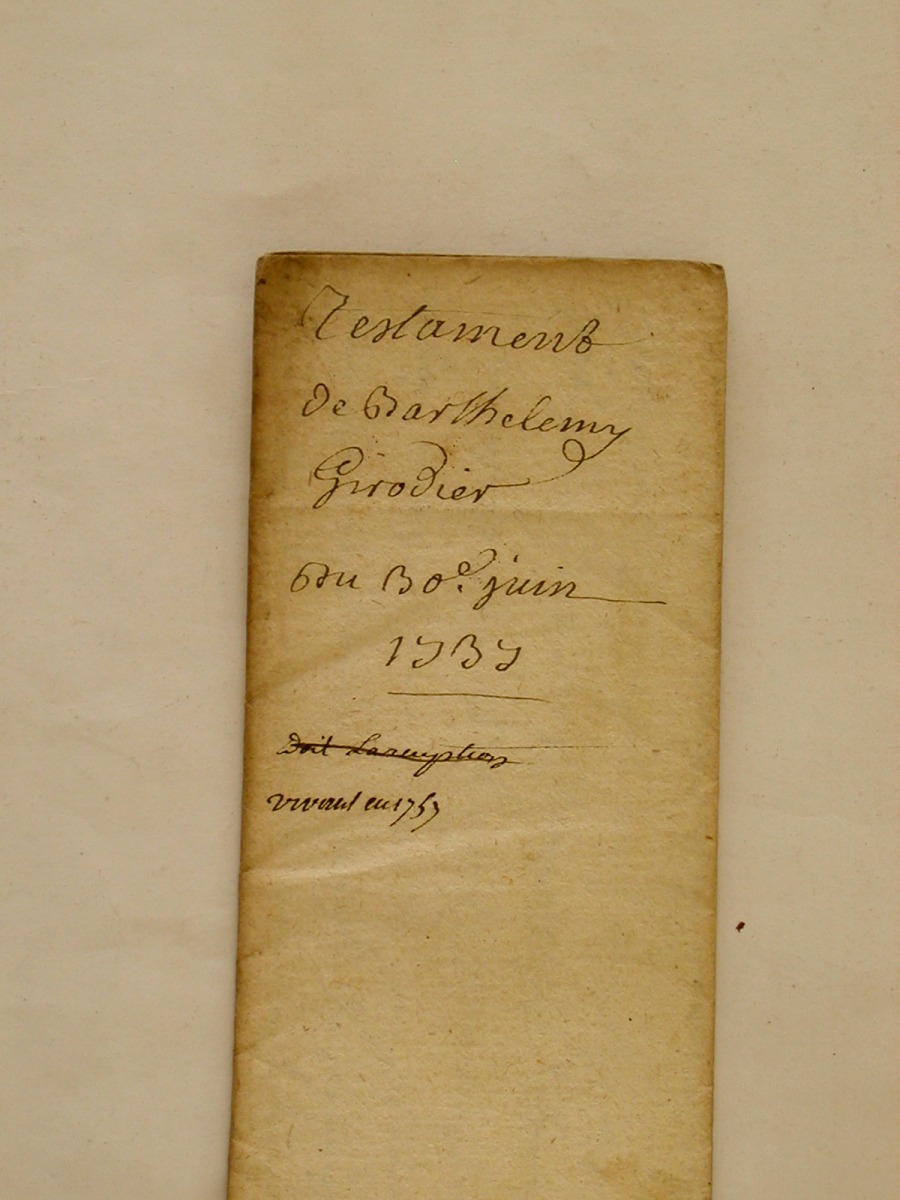 Testament
de Barthelemy
Girodier
Du 30e. juin
1737
Doit Laremption
vivant en 1757